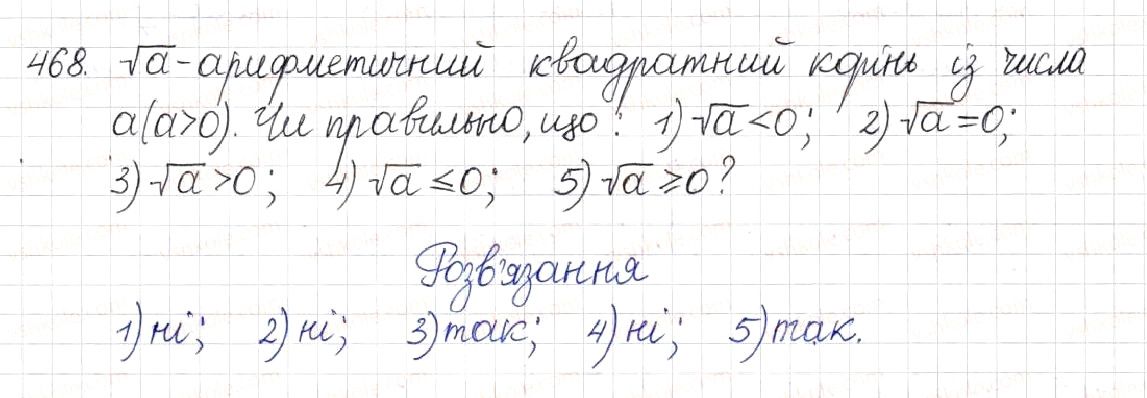 468. √a - арифметичний квадратний корінь із числа
a(a>0). Чи правильно, що: 1) √a<0; 2) √a=0;
3) √a>0; 4) √a≤0; 5) √a≥0?
Розв'язання
1) ні; 2) ні; 3) так; 4) ні; 5) так.